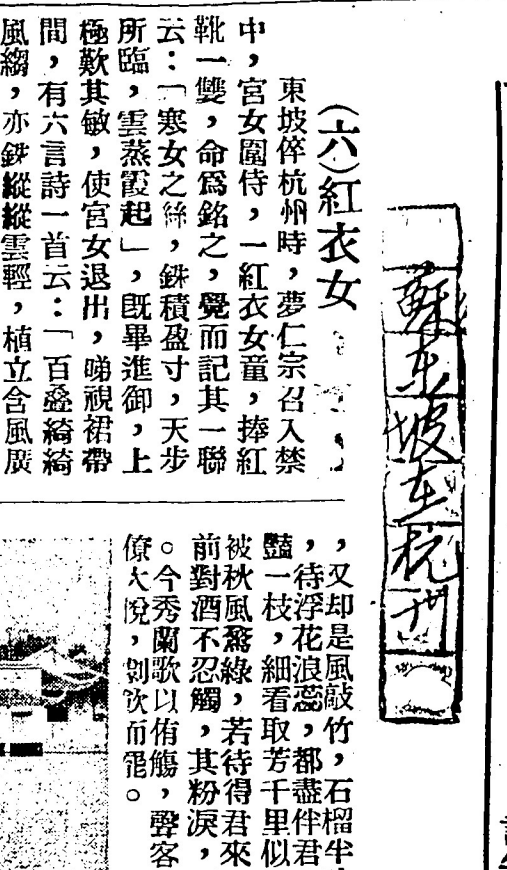 蘇东坡在杭州
(六)紅衣女
東坡倅杭州時，夢仁宗召入禁
中，宮女圍侍，一紅衣女童，捧紅
靴一雙，命爲銘之，覺而記其一聯
云：「寒女之絲，銖積盈寸，天步
所臨，雲蒸霞起」，既畢進御，上
極歎其敏，使宮女退出，睇視裙帶
間，有六言詩一首云：「百疊綺綺
風縐，亦銖縱縱雲輕，植立含風廣
，又却是風敲竹，石榴半
，待浮花浪蕊，都盡伴君
豔一枝，細看取芳千里似
被秋風驚綠，若待得君來
前對酒不忍觸，其粉淚，
。今秀蘭歌以侑觴，聲客
僚大悅，劇飲而罷。